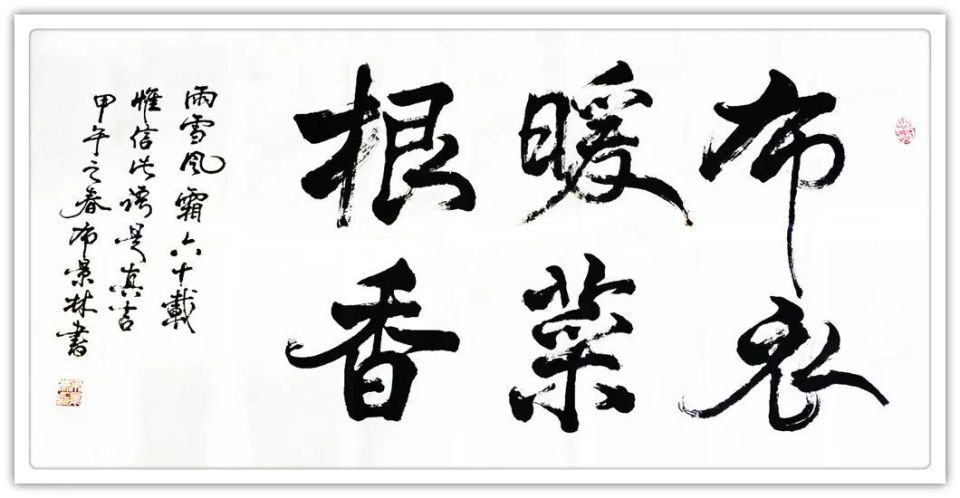 布衣
暖菜
根香
雨雪风霜六十載
惟信此語是真言
甲午之春布景林書